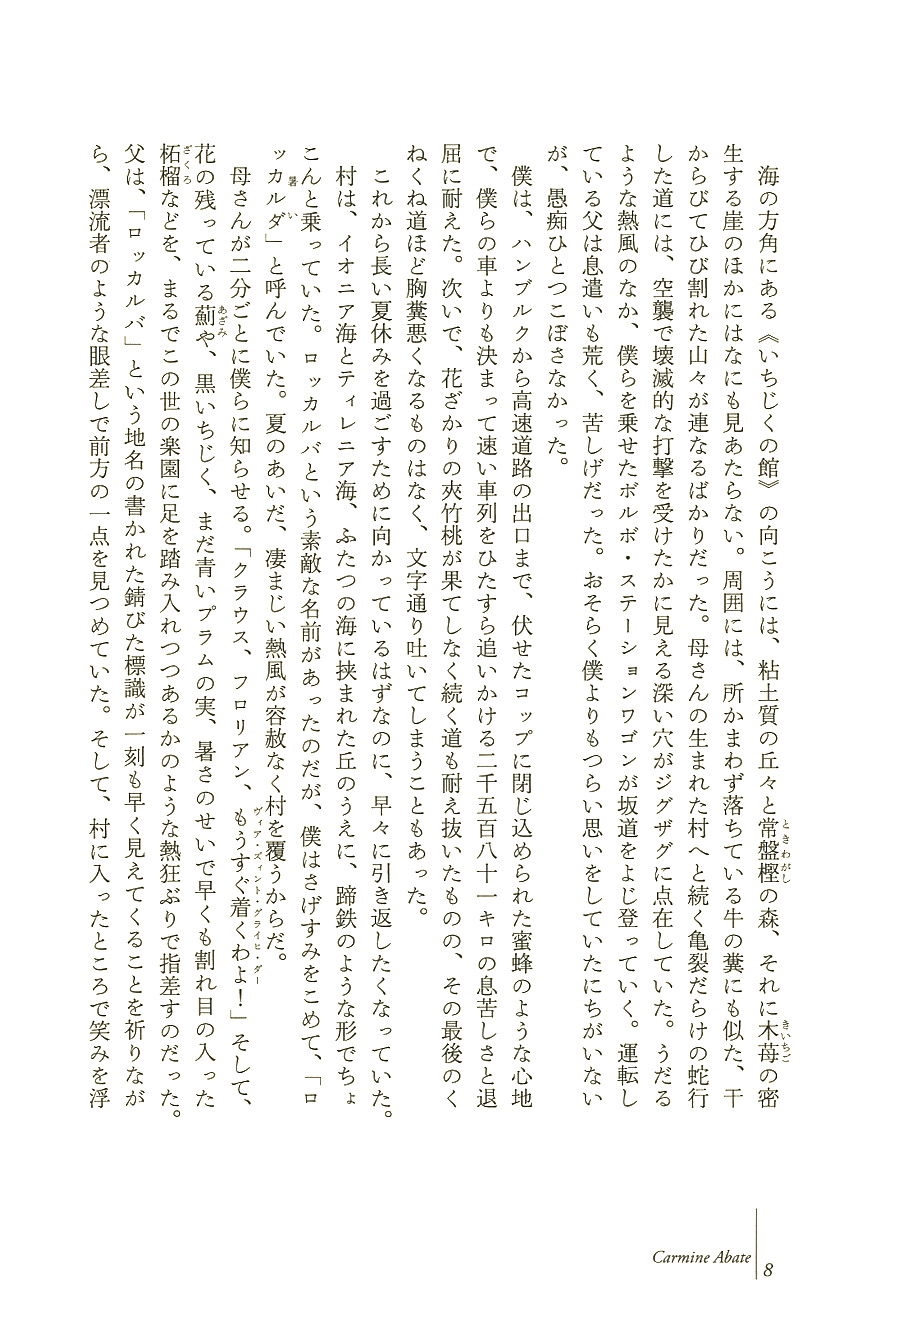 海の方角にある《いちじくの館》の向こうには、粘土質の丘々と常盤樫の森、それに木苺の密
生する崖のほかにはなにも見あたらない。周囲には、所かまわず落ちている牛の糞にも似た、干
からびてひび割れた山々が連なるばかりだった。母さんの生まれた村へと続く亀裂だらけの蛇行
した道には、空襲で壊滅的な打撃を受けたかに見える深い穴がジグザグに点在していた。うだる
ような熱風のなか、僕らを乗せたボルボ・ステーションワゴンが坂道をよじ登っていく。運転し
ている父は息遣いも荒く、苦しげだった。おそらく僕よりもつらい思いをしていたにちがいない
が、愚痴ひとつこぼさなかった。
僕は、ハンブルクから高速道路の出口まで、伏せたコップに閉じ込められた蜜蜂のような心地
で、僕らの車よりも決まって速い車列をひたすら追いかける二千五百八十一キロの息苦しさと退
屈に耐えた。次いで、花ざかりの夾竹桃が果てしなく続く道も耐え抜いたものの、その最後のく
ねくね道ほど胸糞悪くなるものはなく、文字通り吐いてしまうこともあった。
これから長い夏休みを過ごすために向かっているはずなのに、早々に引き返したくなっていた。
村は、イオニア海とティレニア海、ふたつの海に挟まれた丘のうえに、蹄鉄のような形でちょ
こんと乗っていた。ロッカルバという素敵な名前があったのだが、僕はさげすみをこめて、「ロ
ッカルダ」と呼んでいた。夏のあいだ、凄まじい熱風が容赦なく村を覆うからだ。
母さんが二分ごとに僕らに知らせる。「クラウス、フロリアン、もうすぐ着くわよ！」そして、
花の残っている薊や、黒いちじく、まだ青いプラムの実、暑さのせいで早くも割れ目の入った
柘榴などを、まるでこの世の楽園に足を踏み入れつつあるかのような熱狂ぶりで指差すのだった。
父は、「ロッカルバ」という地名の書かれた錆びた標識が一刻も早く見えてくることを祈りなが
ら、漂流者のような眼差しで前方の一点を見つめていた。そして、村に入ったところで笑みを浮
Carmine Abate
8